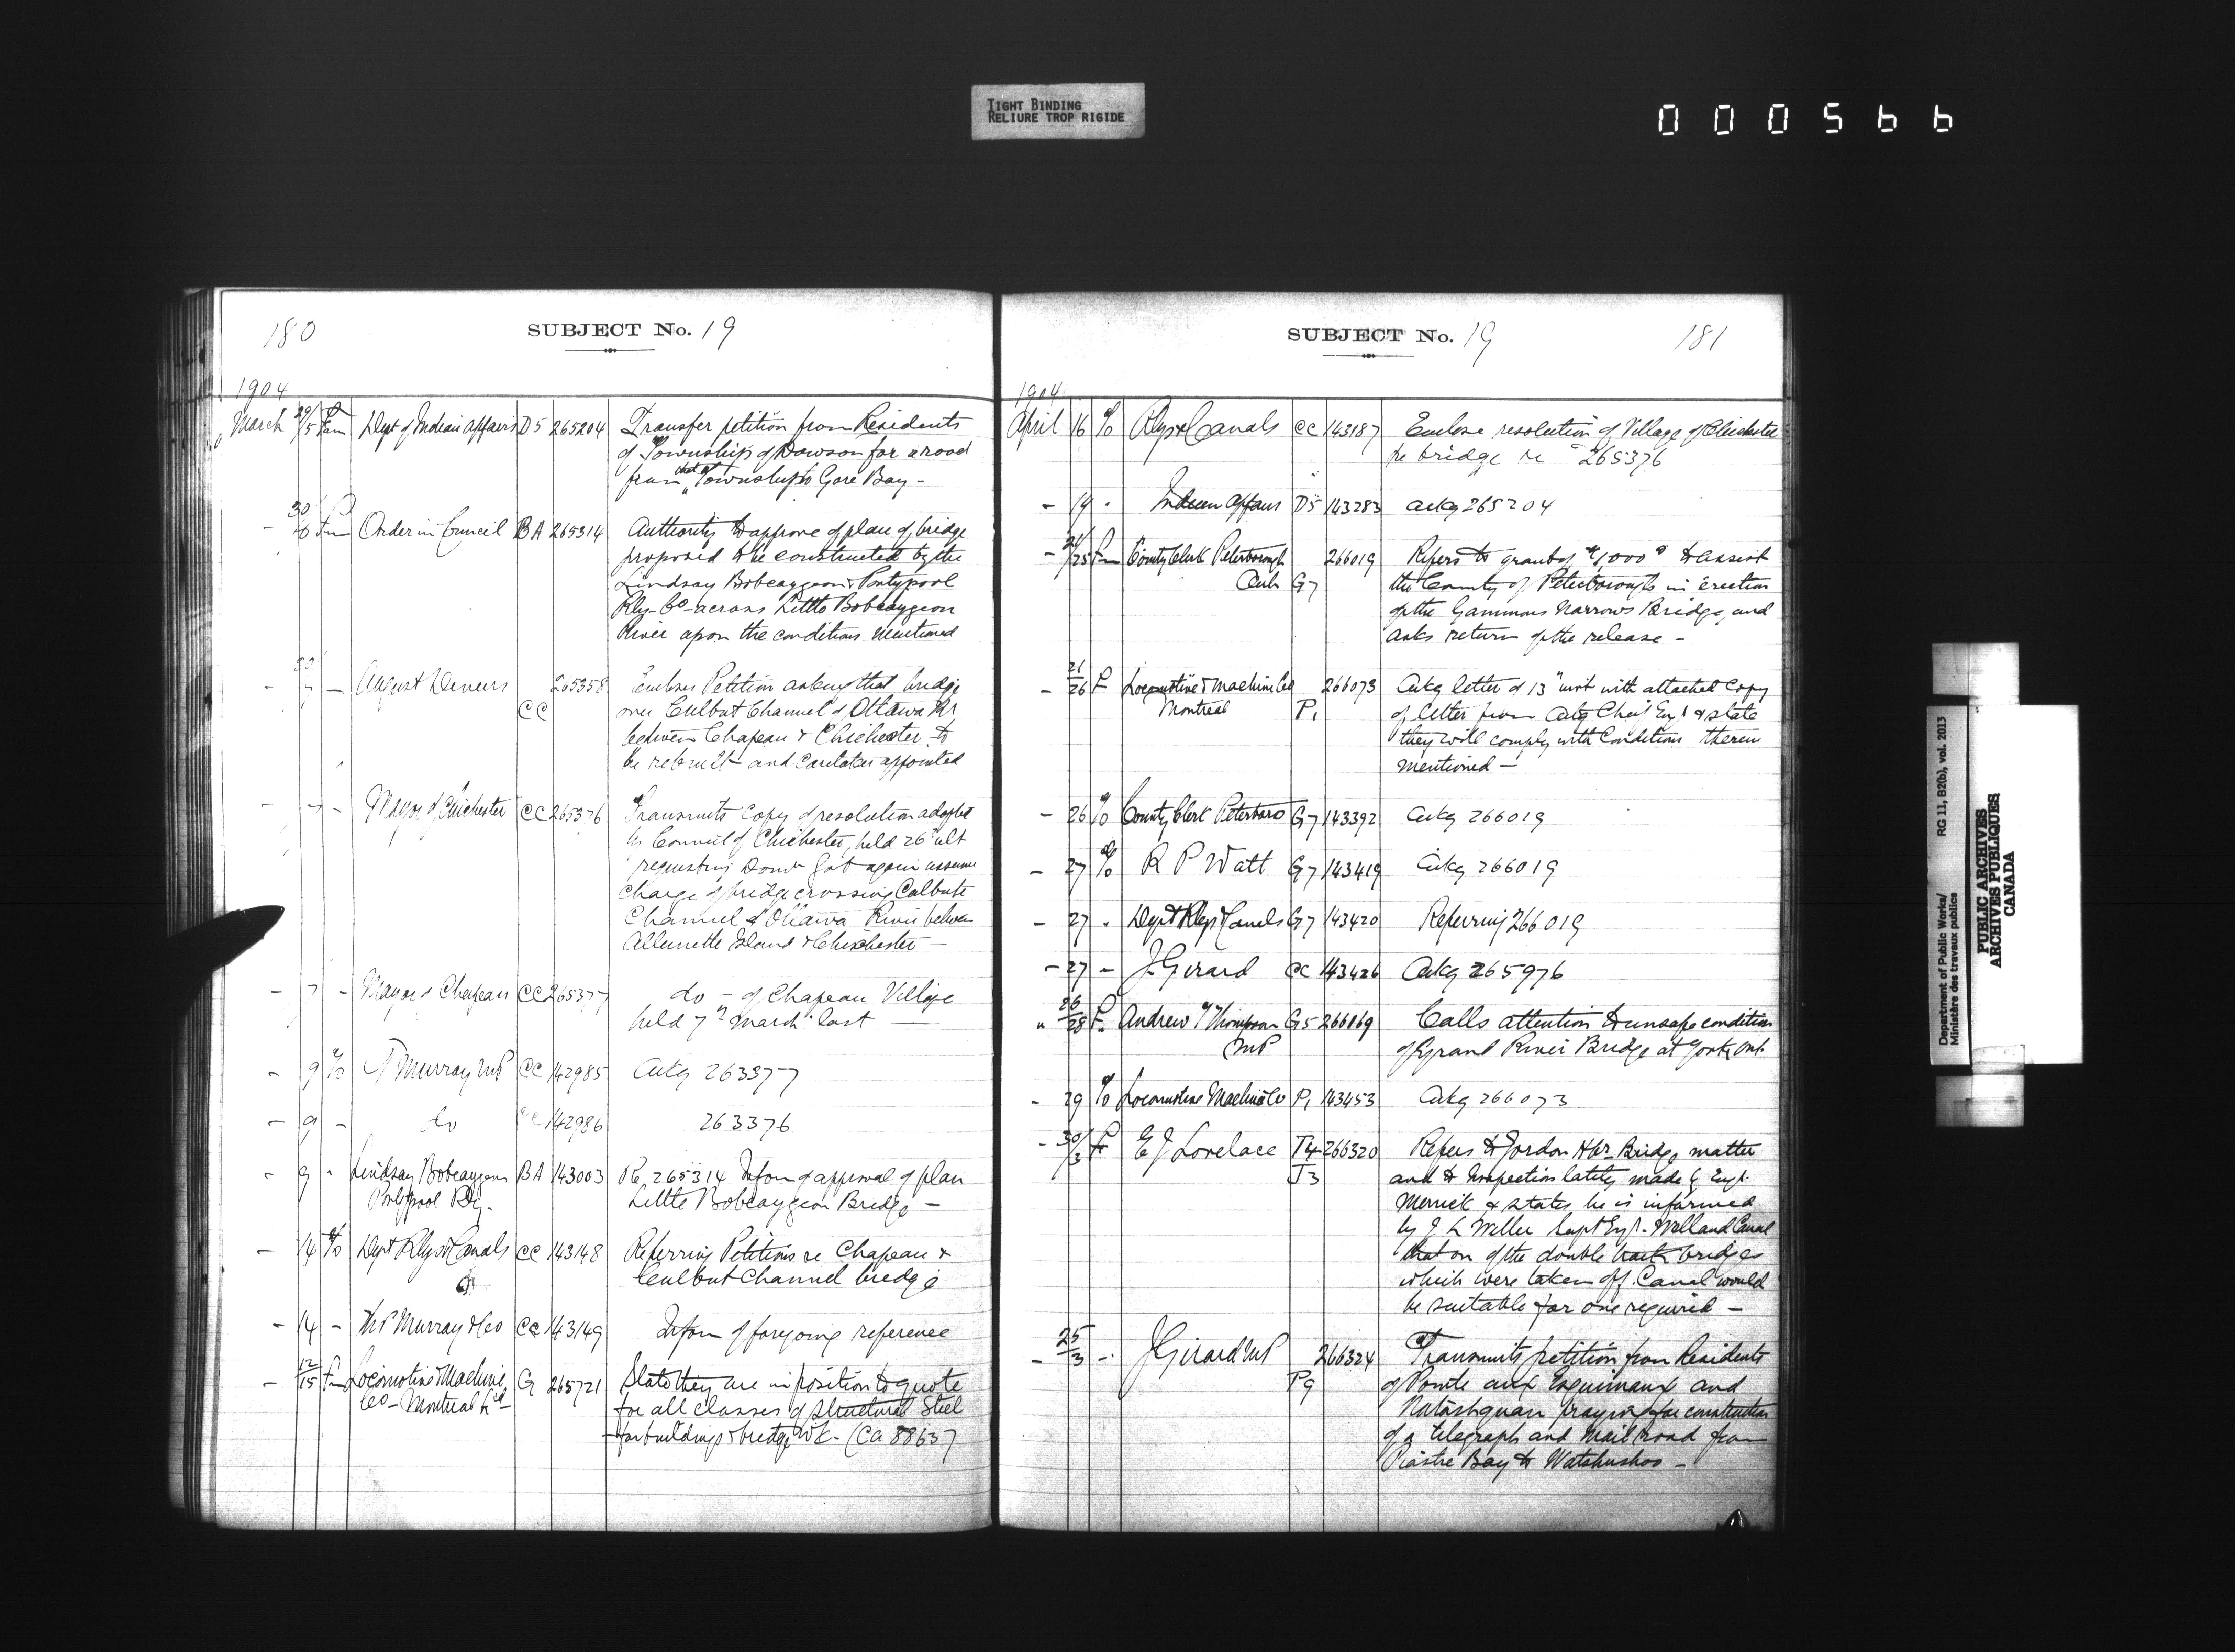 TIGHT BINDING
RELIURE TROP RIGIDE
000566
180
SUBJECT No. 19
1904
March 29/5 Fm Dept of Indian Affairs D5 265204 Transfer petition from Residents
of Township of Dawson for a road
from that of Township to Gore Bay -
- 30/6 Fm Order in Council BA 265314 Authority to approve of plan of bridge
proposed to be constructed by the
Lindsay Bobcaygeon & Pontypool
Rly - Co - across Little Bobcaygeon
River upon the conditions mentioned
- - August Demers CC 265358 Encloses Petition asking that bridge
over Culbut Channel of Ottawa Rr
between Chapeau & Chichester to
be rebuilt - and Caretaker appointed
- 7 - Mayor of Chichester CC 265376 Transmits Copy of resolution adopted
by Council of Chichester, held 26th ult
requesting Domn Govt again assume
charge of bridge crossing Calbute
Channel of Ottawa River between
Allumette Island & Chichester -
- 7 - Mayor of Chapeau CC 265377 do - of Chapeau Village
held 7th March last -
- 9 T Murray MP CC 142985 Ackg 263377
- 9 - do CC 142986 263376
- 9 " Lindsay Bobcaygeon BA 143003 Re 265314 Inform of approval of plan
Pontypool Rly - Little Bobcaygeon Bridge -
- 14 % Dept Rlys & Canals CC 143148 Referring Petitions re Chapeau &
Culbut Channel bridge
- 14 - Murray & Co CC 143149 Inform of foregoing reference
- 12/15 Fm Locomotive & Machine G 265721 State they are in position to quote
Co - Montreal Ltd - for all classes of structural Steel
for buildings & bridge Wk - (CA 88637
SUBJECT No. 19
181
1904
April 16 % Rlys & Canals CC 143187 Enclose resolution of Village of Chichester
re bridge re 265376
- 19 " Indian Affairs D5 143283 ackg 265204
- 21/25 Fm County Clerk Peterborough 266019 Refers to grant of $1,000 00 to assist
G7 the County of Peterborough in erection
of the Gammons Narrows Bridge, and
asks return of the release -
- 21/26 F Locomotive & Machine Co 266073 Ackg letter of 13th inst with attached Copy
Montreal P1 of letter from Actg Chief Engr & state
they will comply with Conditions therein
mentioned -
- 26 % County Clerk Peterboro G7 143392 Ackg 266019
- 27 % R P Watt G7 143419 Ackg 266019
- 27 " Dept Rlys & Canals G7 143420 Referring 266019
- 27 - J. Girard CC 143426 Ackg 265976
" 26/28 F Andrew T Thompson G5 266169 Calls attention to unsafe condition
MP of Grand River Bridge at York Ont.
- 29 % Locomotive Machine Co P1 143453 Ackg 266073
- 30/3 Fr E J Lovelace T4 266320 Refers to Jordon Hbr Bridge matter
J3 and to Inspection lately made by Engr.
Merrick & states he is informed
by J L Weller Supt Engr. Welland Canal
that on of the double track bridges
which were taken off Canal would
be suitable for one required -
- 25/3 - J Girard MP 266324 Transmits petition from Residents
P9 of Pointe aux Esquimaux and
Natashquan praying for construction
of a telegraph and Mail road from
Piastre Bay to Watshushoo -
Department of Public Works/ RG 11, B2(b), vol. 2013
Ministère des travaux publics
PUBLIC ARCHIVES
ARCHIVES PUBLIQUES
CANADA